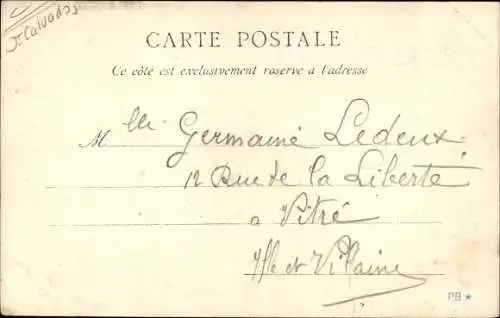 Calvados
CARTE POSTALE
Ce côté est exclusivement reserve a l'adresse
Mlle Germaine Ledeux
12 Rue de la Liberté
a Vitré
Ille et Vilaine
PB ★